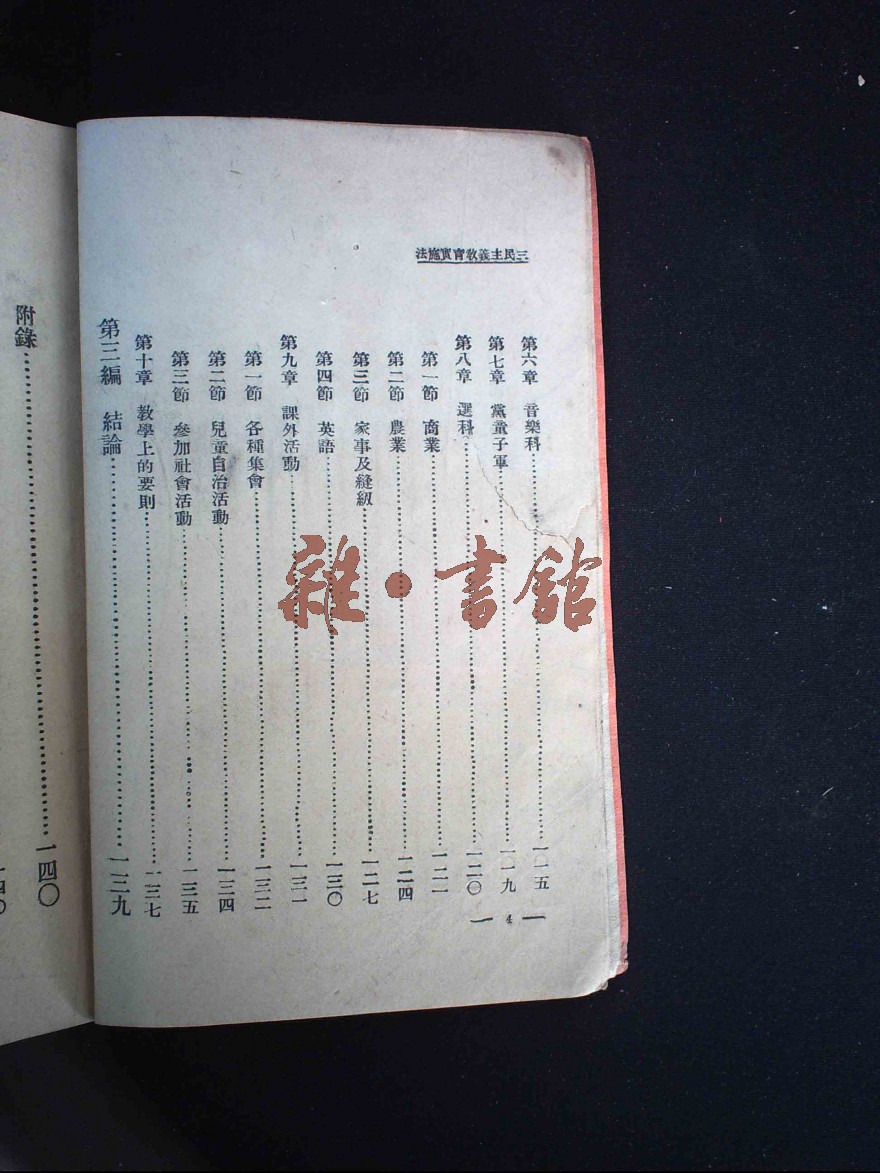 三民主義教育實施法
第六章 音樂科……一一五
第七章 黨童子軍……一一九
第八章 選科……一二〇
第一節 商業……一二一
第二節 農業……一二四
第三節 家事及縫紉……一二七
第四節 英語……一三〇
第九章 課外活動……一三一
第一節 各種集會……一三二
第二節 兒童自治活動……一三四
第三節 參加社會活動……一三五
第十章 教學上的要則……一三七
第三編 結論……一三九
4
附錄……一四〇
一四〇
雜·書館